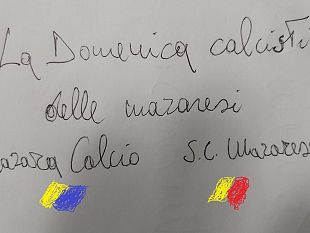 La Domenica calcisti
delle mazaresi
azara Calcio S.C. Mazares